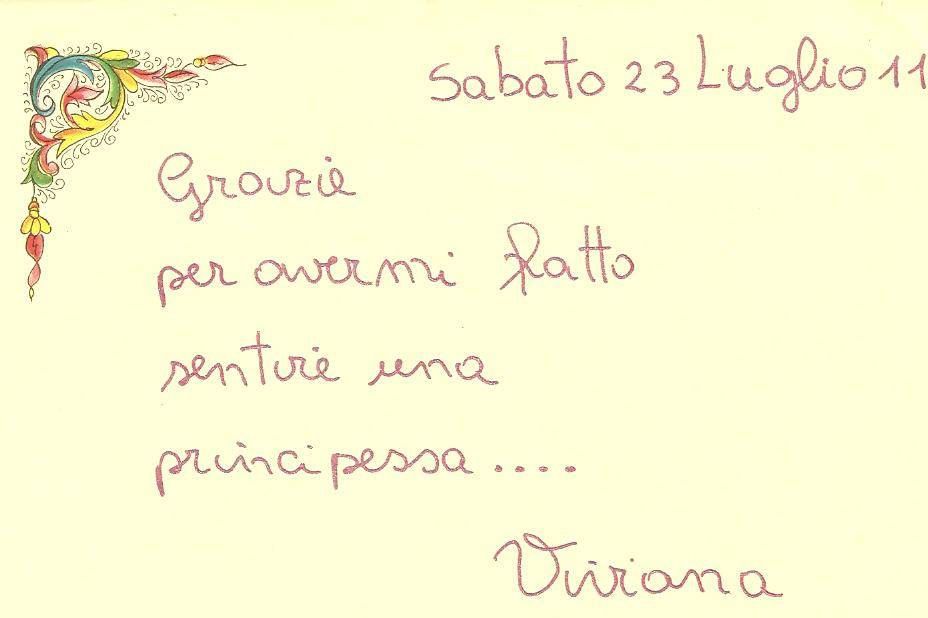 Sabato 23 Luglio 11
Grazie
per avermi fatto
sentire una
principessa....
Viviana